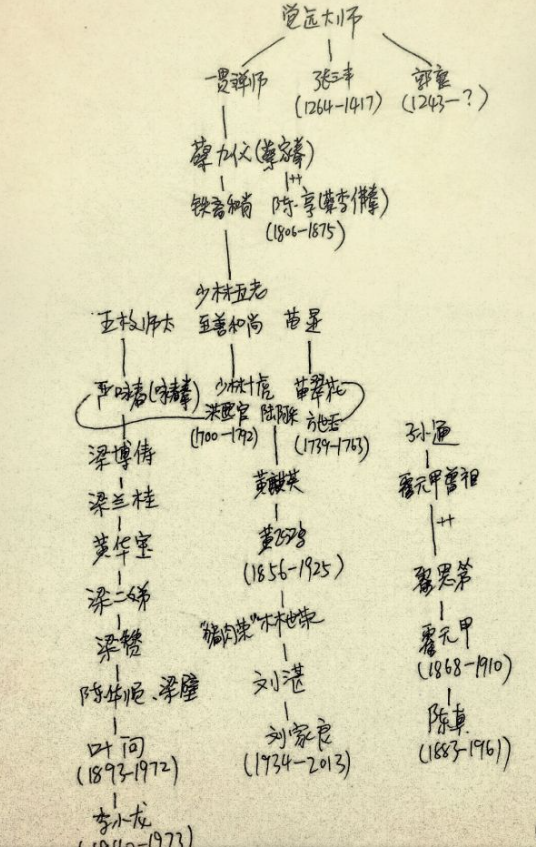 觉远大师
一贯禅师 张三丰 郭襄
(1264-1417) (1243-?)
蔡九仪(蔡家拳)
铁斋和尚 陈享(蔡李佛拳)
(1806-1875)
少林五老
五枚师太 至善和尚 苗显
严咏春(咏春拳) 少林十虎 苗翠花
洪熙官 陆阿采 方世玉
(1700-1792) (1739-1763)
孙通
梁博俦 黄麒英 霍元甲曾祖
梁兰桂 黄飞鸿
黄华宝 (1856-1925) 霍恩第
梁二娣 "猪肉荣"林世荣 霍元甲
梁赞 (1868-1910)
陈华顺、梁璧 刘湛 陈真
叶问 刘家良 (1883-1961)
(1893-1972) (1934-2013)
李小龙